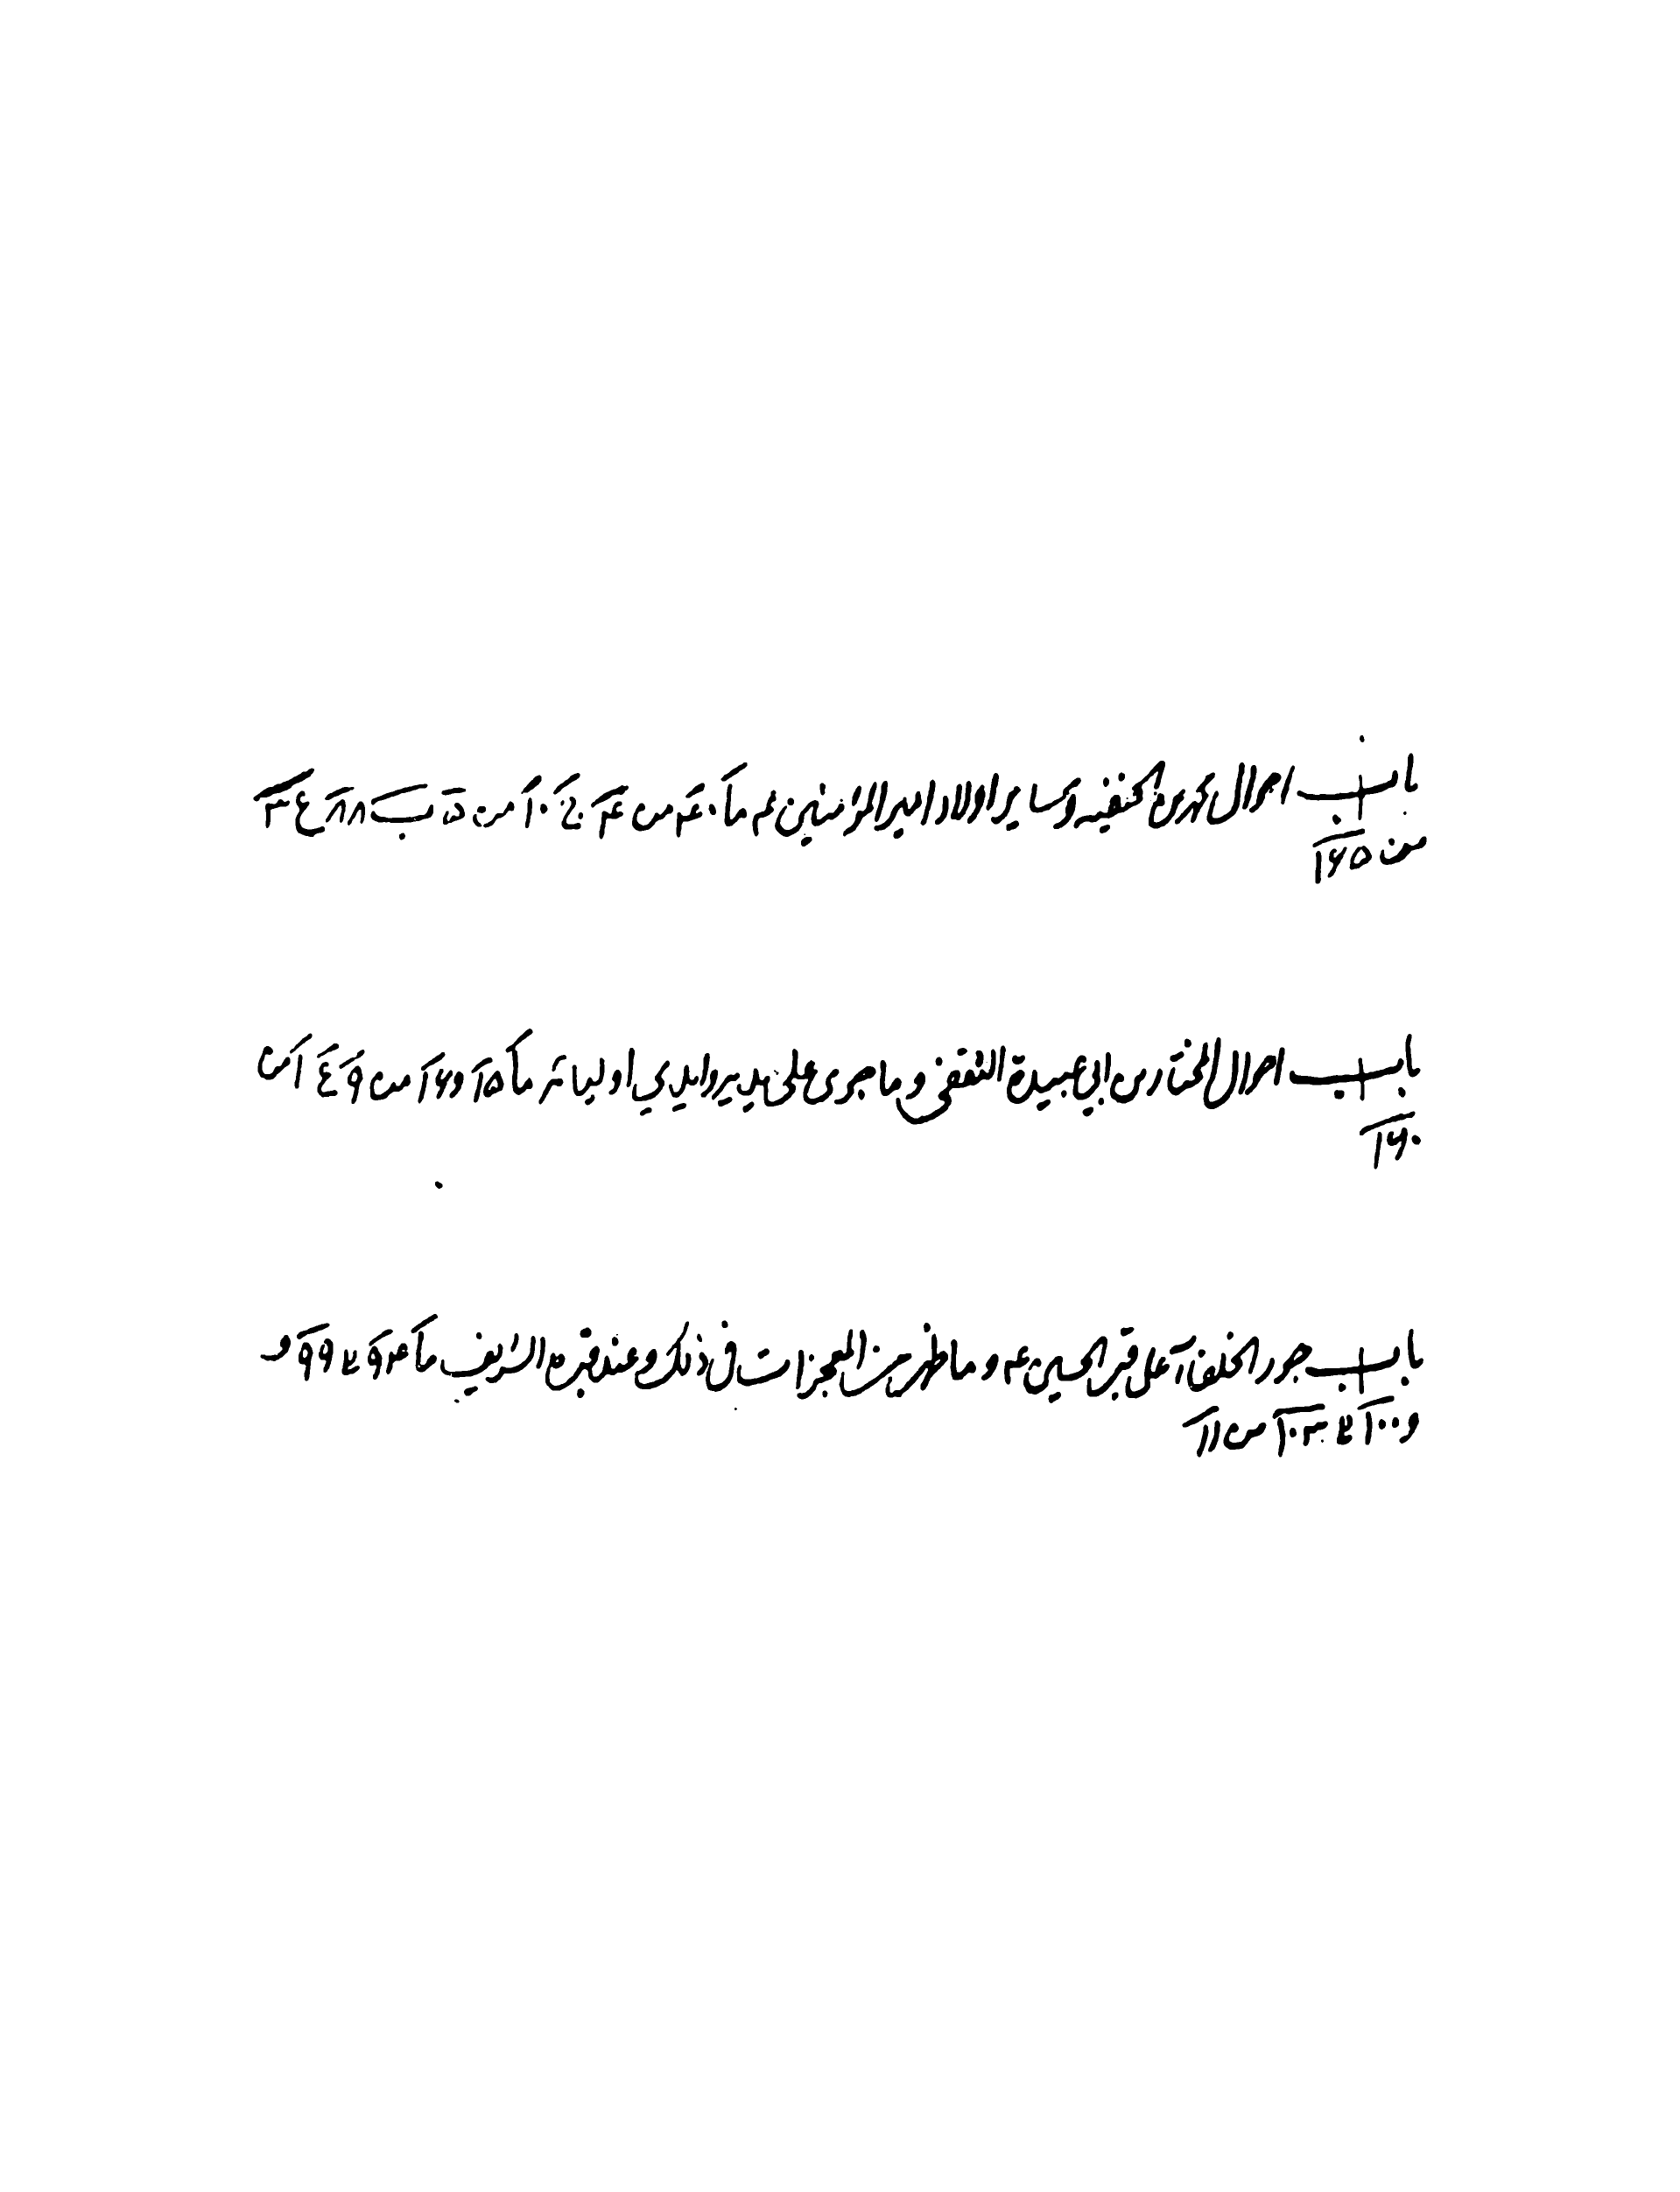 باب احوال محمد بن الحنفيه و ساير اولاد امير المؤمنين ع
من ١٦٥
باب احوال المختار بن ابي عبيدة الثقفي و ما جرى على يديه و ايدي اوليائه ما ١٥ و ١٦ من
١٦٠
باب جور الخلفاء على قبر الحسين ع و ما ظهر من المعجزات في ذلك و عند قبره الشريف
و ١٠٠ ١٠٣ من ١١